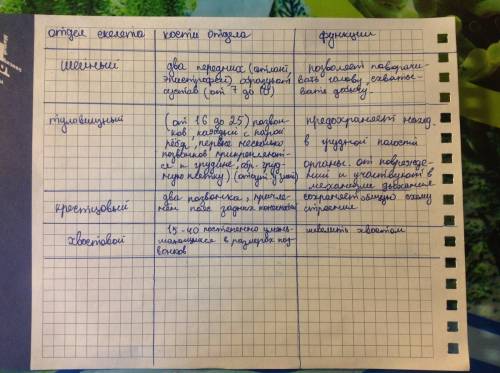 отдел скелета кости отдела функции
шейный
два передних (атлант, эпистрофей) образуют
сустав (от 7 до
позволяет поворачи-
вать голову, схваты-
вать добычу.
туловищный
(от 16 до 25) позвон-
ков, каждый с парой
рёбр, первые несколько
позвонков прикрепляют-
ся к грудине обр. груд-
ную клетку)
предохраняет наход.
в грудной полости
органы от поврежде-
ний и участвуют в
механизме дыхания
крестцовый
два позвонка, причле-
нён пояс задних конечностей
сохраняет общую схему
строения
хвостовой
15-40 постепенно умень-
шающихся в размерах поз-
вонков
шевелить хвостом